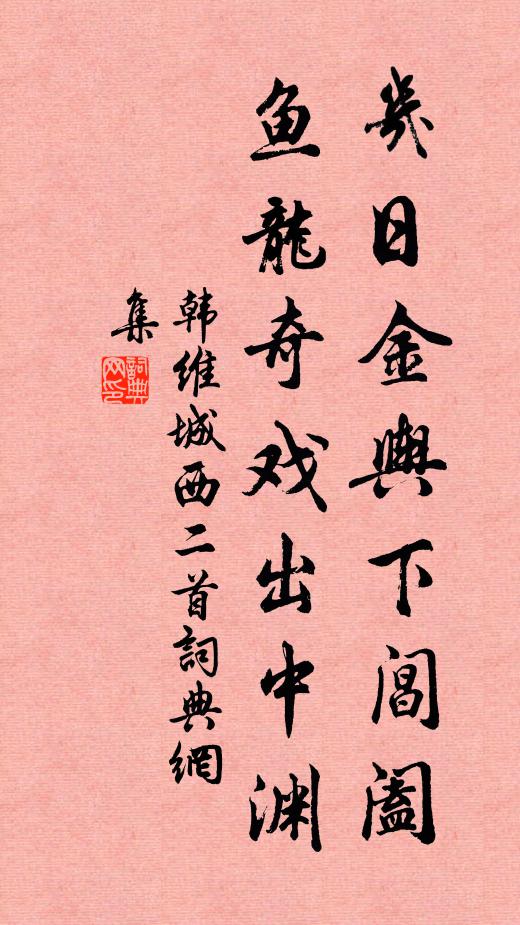 几日金舆下阊阖
鱼龍奇戏出中渊
韩维城西二首詞典網
集
詞典网印